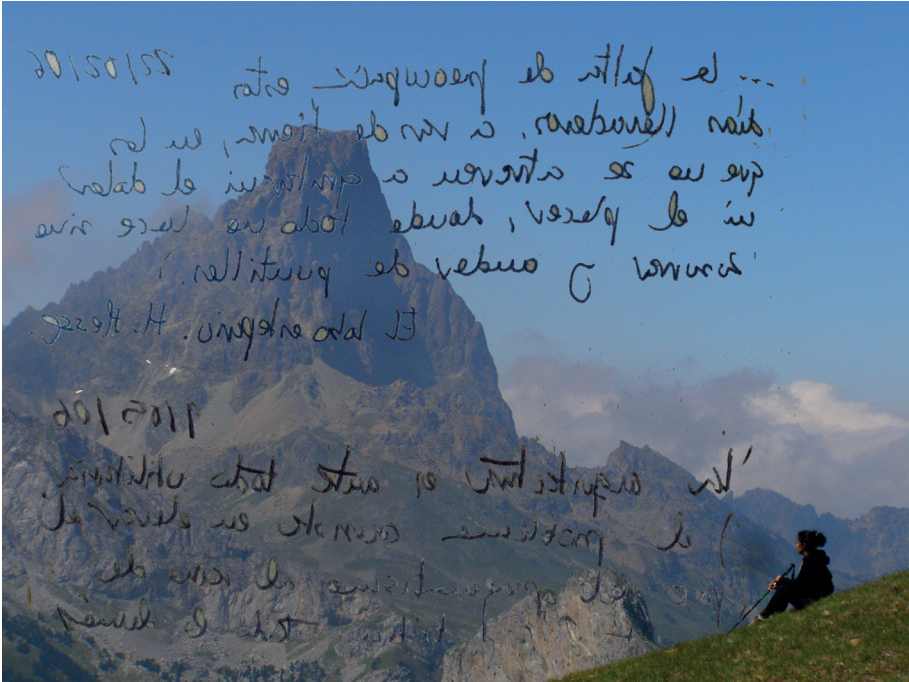 ... la falta de preocupació estos 22/02/06
días llevaderos, a ras de tierra, en los
que no se atreven a gritar ni el dolor
ni el placer, donde todo no hace sino
susurrar y andar de puntillas.
El lobo estepario. H. Hesse.
9/05/06
arquitectura es ante todo utilitaria,
y el problema consiste en elevar
el pragmatismo al de
todo lo demás